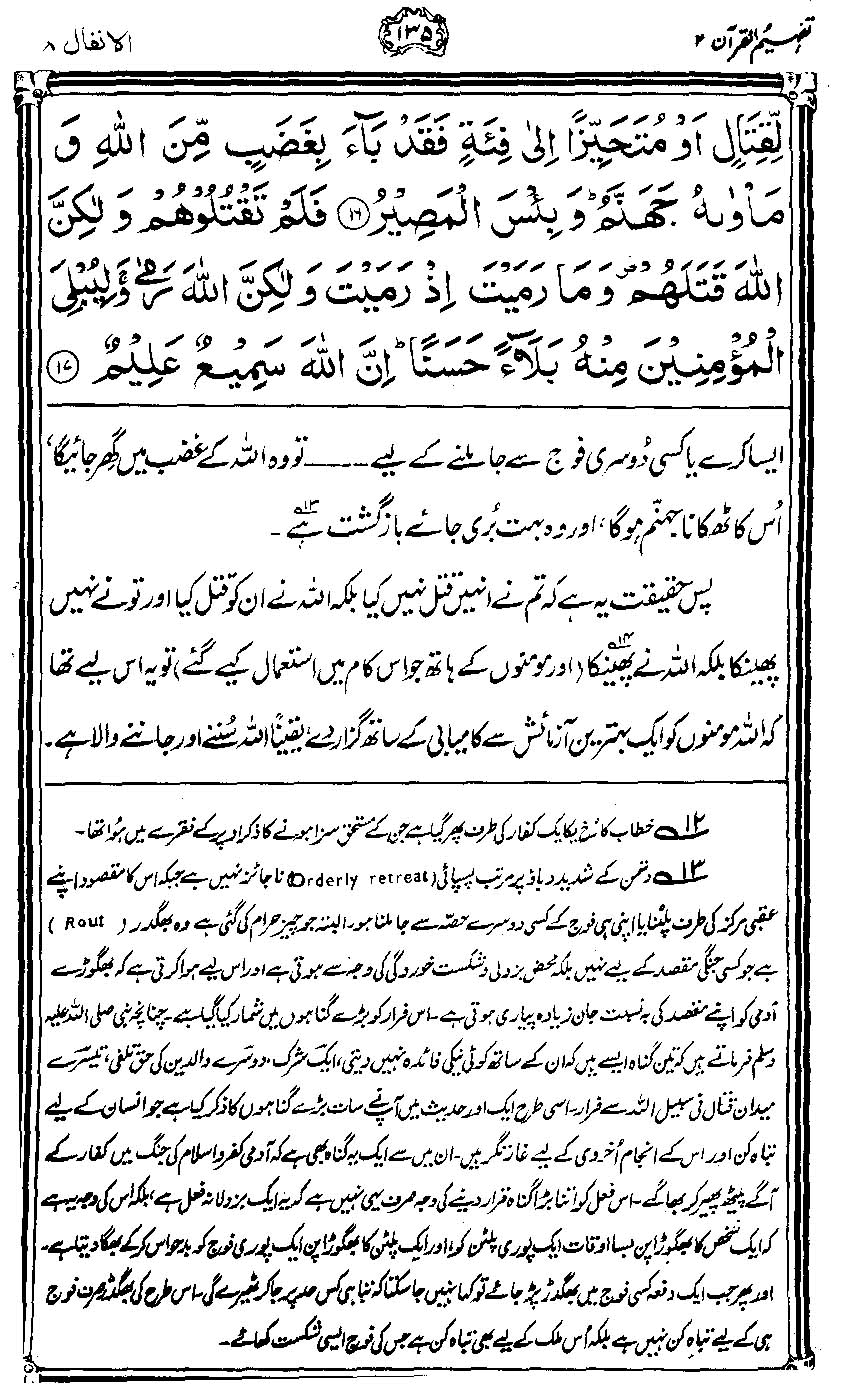 تفہیم القرآن ۲
۱۳۵
الانفال ۸
لِّقِتَالٍ اَوْ مُتَحَيِّزًا اِلٰى فِئَةٍ فَقَدْ بَآءَ بِغَضَبٍ مِّنَ اللّٰهِ وَ
مَاْوٰىهُ جَهَنَّمُ ؕ وَ بِئْسَ الْمَصِيْرُ ﴿۱۶﴾ فَلَمْ تَقْتُلُوْهُمْ وَ لٰكِنَّ
اللّٰهَ قَتَلَهُمْ ۪ وَ مَا رَمَيْتَ اِذْ رَمَيْتَ وَ لٰكِنَّ اللّٰهَ رَمٰى ۚ وَ لِيُبْلِىَ
الْمُؤْمِنِيْنَ مِنْهُ بَلَآءً حَسَنًا ؕ اِنَّ اللّٰهَ سَمِيْعٌ عَلِيْمٌ ﴿۱۷﴾
ایسا کرے یا کسی دُوسری فوج سے جا ملنے کے لیے ــــــ تو وہ اللہ کے غضب میں گھِر جائیگا،
اُس کا ٹھکانا جہنّم ہوگا، اور وہ بہت بُری جائے بازگشت ہے۱۳۔
پس حقیقت یہ ہے کہ تم نے انہیں قتل نہیں کیا بلکہ اللہ نے ان کو قتل کیا اور تو نے نہیں
پھینکا بلکہ اللہ نے پھینکا۱۴ (اور مومنوں کے ہاتھ جو اس کام میں استعمال کیے گئے) تو یہ اس لیے تھا
کہ اللہ مومنوں کو ایک بہترین آزمائش سے کامیابی کے ساتھ گزار دے، یقیناً اللہ سُننے اور جاننے والا ہے۔
۱۲ خطاب کا رُخ یکایک کفار کی طرف پھر گیا ہے جن کے مستحق سزا ہونے کا ذکر اوپر کے فقرے میں ہُوا تھا۔
۱۳ دشمن کے شدید دباؤ پر مرتب پسپائی (Orderly retreat) ناجائز نہیں ہے جبکہ اس کا مقصود اپنے
عقبی مرکز کی طرف پلٹنا یا اپنی ہی فوج کے کسی دوسرے حصّہ سے جا ملنا ہو۔ البتہ جو چیز حرام کی گئی ہے وہ بھگدڑ (Rout)
ہے جو کسی جنگی مقصد کے لیے نہیں بلکہ محض بزدلی و شکست خوردگی کی وجہ سے ہوتی ہے اور اس لیے ہوا کرتی ہے کہ بھگوڑے
آدمی کو اپنے مقصد کی بہ نسبت جان زیادہ پیاری ہوتی ہے۔ اس فرار کو بڑے گناہوں میں شمار کیا گیا ہے۔ چنانچہ نبی صلی اللہ علیہ
وسلم فرماتے ہیں کہ تین گناہ ایسے ہیں کہ ان کے ساتھ کوئی نیکی فائدہ نہیں دیتی، ایک شرک، دوسرے والدین کی حق تلفی، تیسرے
میدان قتال فی سبیل اللہ سے فرار۔ اسی طرح ایک اور حدیث میں آپؐ نے سات بڑے گناہوں کا ذکر کیا ہے جو انسان کے لیے
تباہ کن اور اس کے انجام اُخروی کے لیے غارتگر ہیں۔ ان میں سے ایک یہ گناہ بھی ہے کہ آدمی کفر و اسلام کی جنگ میں کفار کے
آگے پیٹھ پھیر کر بھاگے۔ اس فعل کو اتنا بڑا گناہ قرار دینے کی وجہ صرف یہی نہیں ہے کہ یہ ایک بزدلانہ فعل ہے، بلکہ اس کی وجہ یہ ہے
کہ ایک شخص کا بھگوڑا پن بسا اوقات ایک پوری پلٹن کو، اور ایک پلٹن کا بھگوڑا پن ایک پوری فوج کو بدحواس کرکے بھگا دیتا ہے۔
اور پھر جب ایک دفعہ کسی فوج میں بھگدڑ پڑ جائے تو کہا نہیں جا سکتا کہ تباہی کس حد پر جا کر ٹھیرے گی۔ اس طرح کی بھگدڑ صرف فوج
ہی کے لیے تباہ کن نہیں ہے بلکہ اُس ملک کے لیے بھی تباہ کن ہے جس کی فوج ایسی شکست کھائے۔